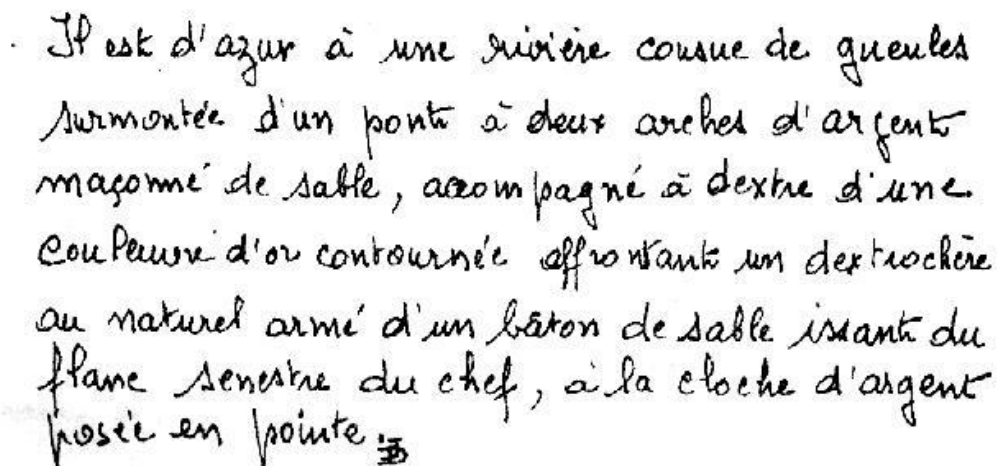 Il est d'azur à une rivière cousue de gueules
surmontée d'un pont à deux arches d'argent
maçonné de sable, accompagné à dextre d'une
couleuvre d'or contournée affrontant un dextrochère
au naturel armé d'un bâton de sable issant du
flanc senestre du chef, à la cloche d'argent
posée en pointe.